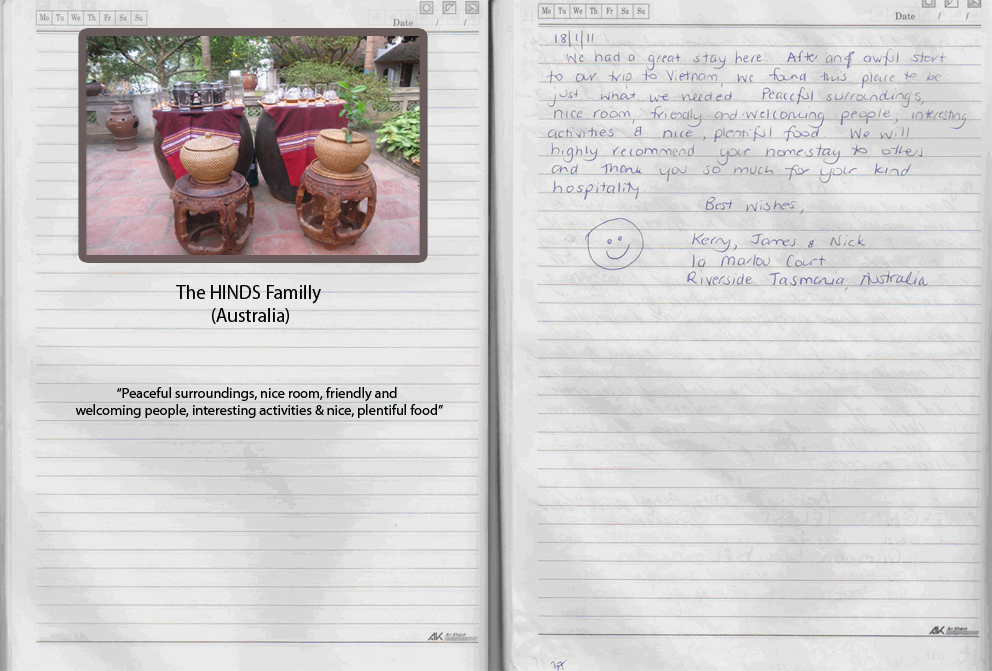 Mo Tu We Th Fr Sa Su
Date / /
The HINDS Familly
(Australia)
“Peaceful surroundings, nice room, friendly and
welcoming people, interesting activities & nice, plentiful food”
AK An Khánh
Mo Tu We Th Fr Sa Su
Date / /
18/1/11
We had a great stay here. After an awful start
to our trip to Vietnam, we found this place to be
just what we needed. Peaceful surroundings,
nice room, friendly and welcoming people, interesting
activities & nice, plentiful food. We will
highly recommend your homestay to others
and thank you so much for your kind
hospitality
Best Wishes,
Kerry, James & Nick
1a Marlou Court
Riverside Tasmania, Australia
AK An Khánh